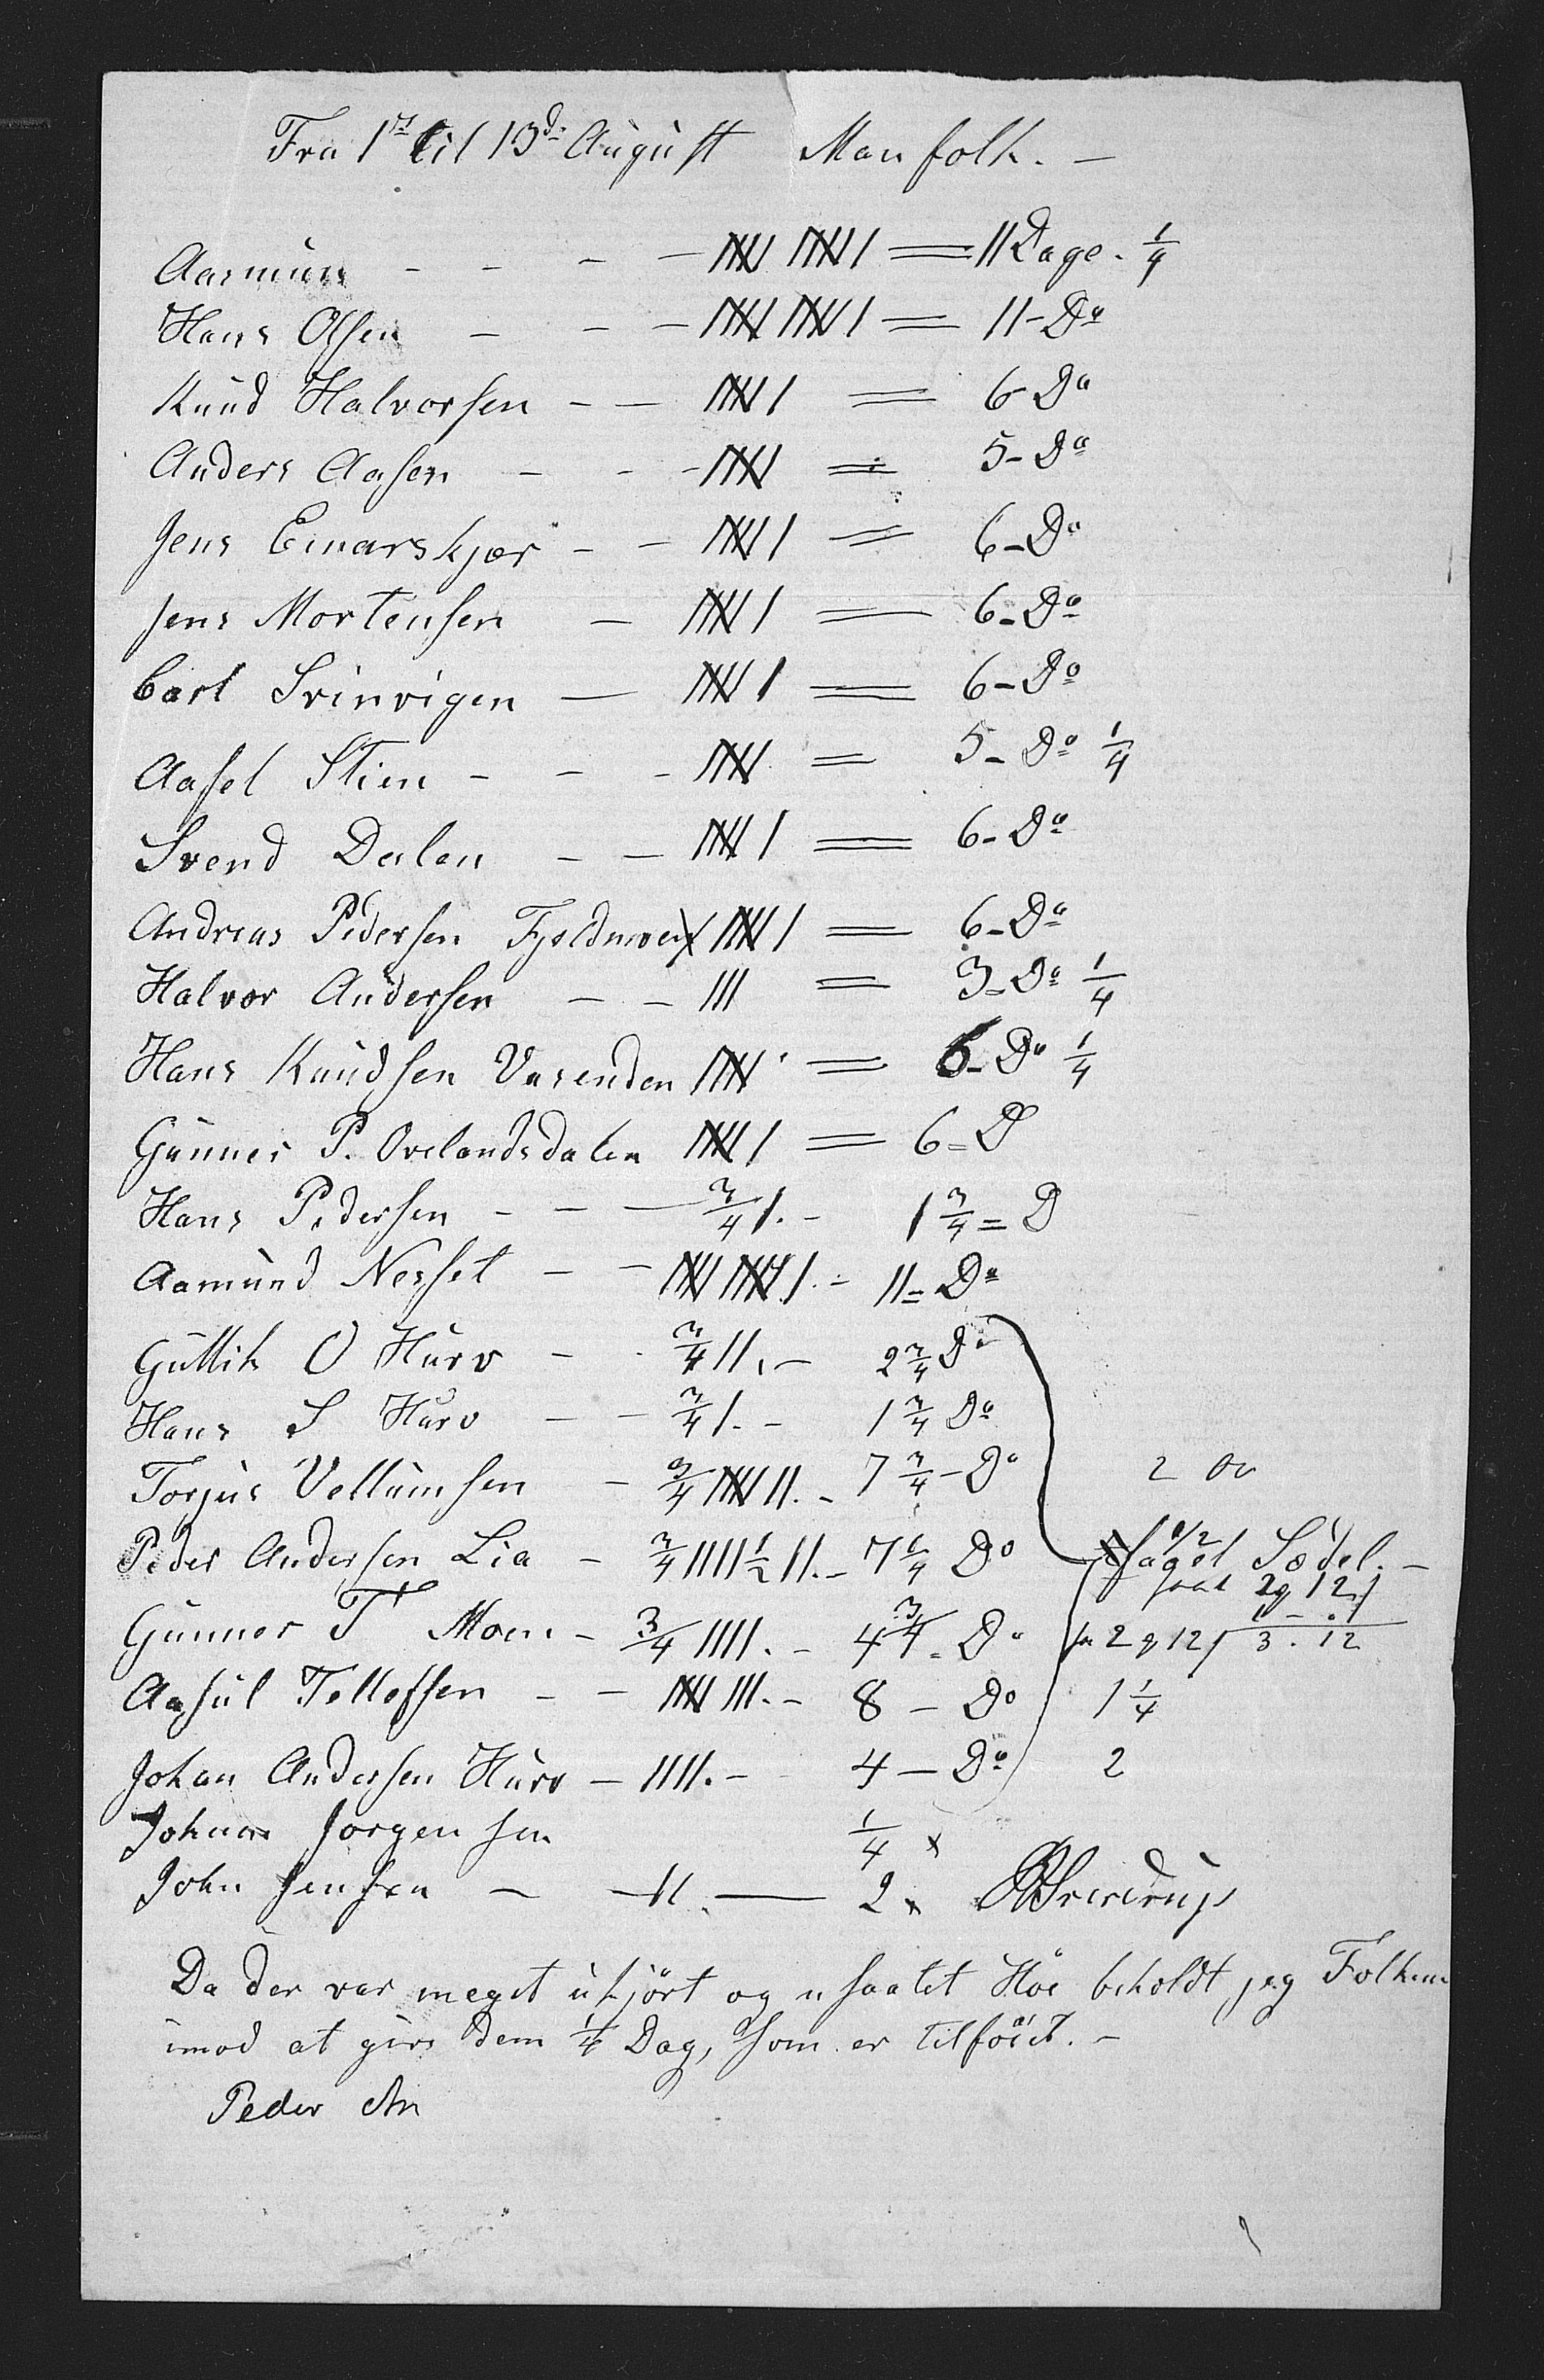 Fra 1st til 13de August Manfolk. —
Aasmun - - - — |||| |||| | = 11 Dage. 1/4
Hans Olsen - - — |||| |||| | = 11 - Do
Knud Halvorsen - — |||| | = 6 Do
Anders Aasen - - - |||| = 5 - Do
Jens Einarskjær - - |||| | = 6 - Do
Jens Mortensen — |||| | = 6 - Do
Carl Svinvigen — |||| | = 6 - Do
Aasel Stien - - - |||| = 5 - Do 1/4
Svend Dalen - — |||| | = 6 - Do
Andreas Pedersen Fjeldmoen |||| | = 6 - Do
Halvor Andersen - - ||| = 3 - Do 1/4
Hans Knudsen Vasenden |||| = 6 - Do 1/4
Gunner P. Ovelandsdalen |||| | = 6 = D
Hans Pedersen - - — 3/4 |. - 1 3/4 = D
Aamund Nesset - - |||| |||| |. - 11 = Do
Guttik O Hurv - - 3/4 ||. - 2 3/4 Do
Hans S Hurv - - 3/4 |. - 1 3/4 Do
Torjus Vellumsen - 3/4 |||| ||. - 7 3/4 - Do 2
Peder Andersen Lia - 3/4 |||| 1/2 ||. - 7 1/4 Do 1/2 Sædel. -
2 12
Gunner T Moen - 3/4 ||||. - 4 3/4 = Do 2 12 3. 12
Aasul Tellefsen - - |||| |||. - 8 - Do 1 1/4
Johan Andersen Hurv - ||||. - 4 - Do 2
Johan Jorgensen 1/4 x
John Jensen - - ||. — 2 x
Da der var meget ukjört og usaatet Höe beholdt jeg Folkene
imod at give dem 1/4 Dag, som er tilföiet. -
Peder An